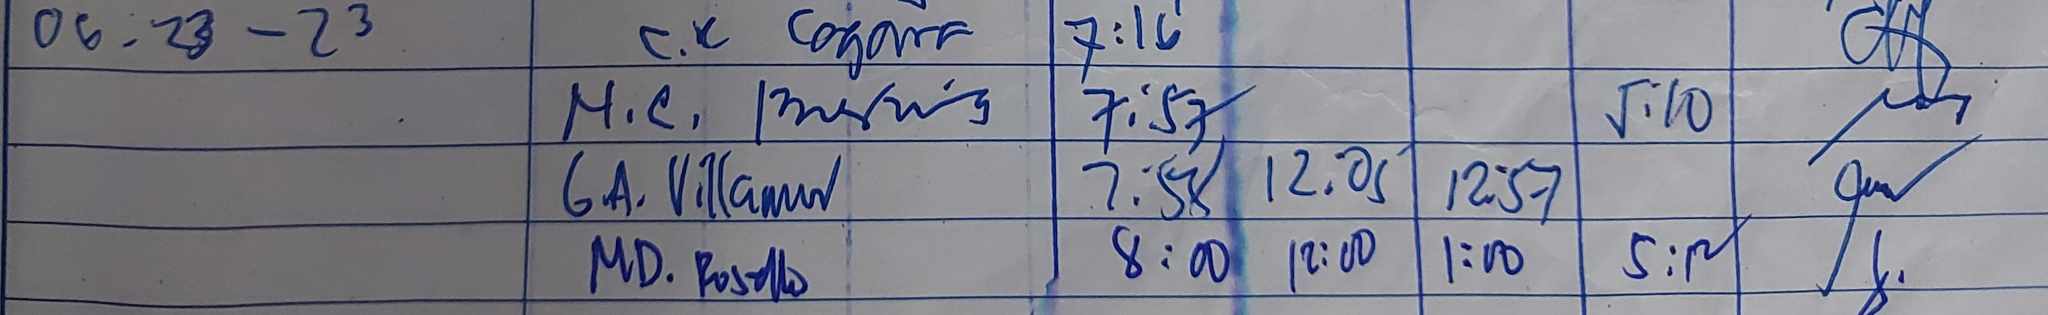 06-23-23 C.K 7:16
M.C. 7:57 5:10
G.A. Villamor 7:58 12:05 12:57
MD. Rosello 8:00 12:00 1:00 5:12